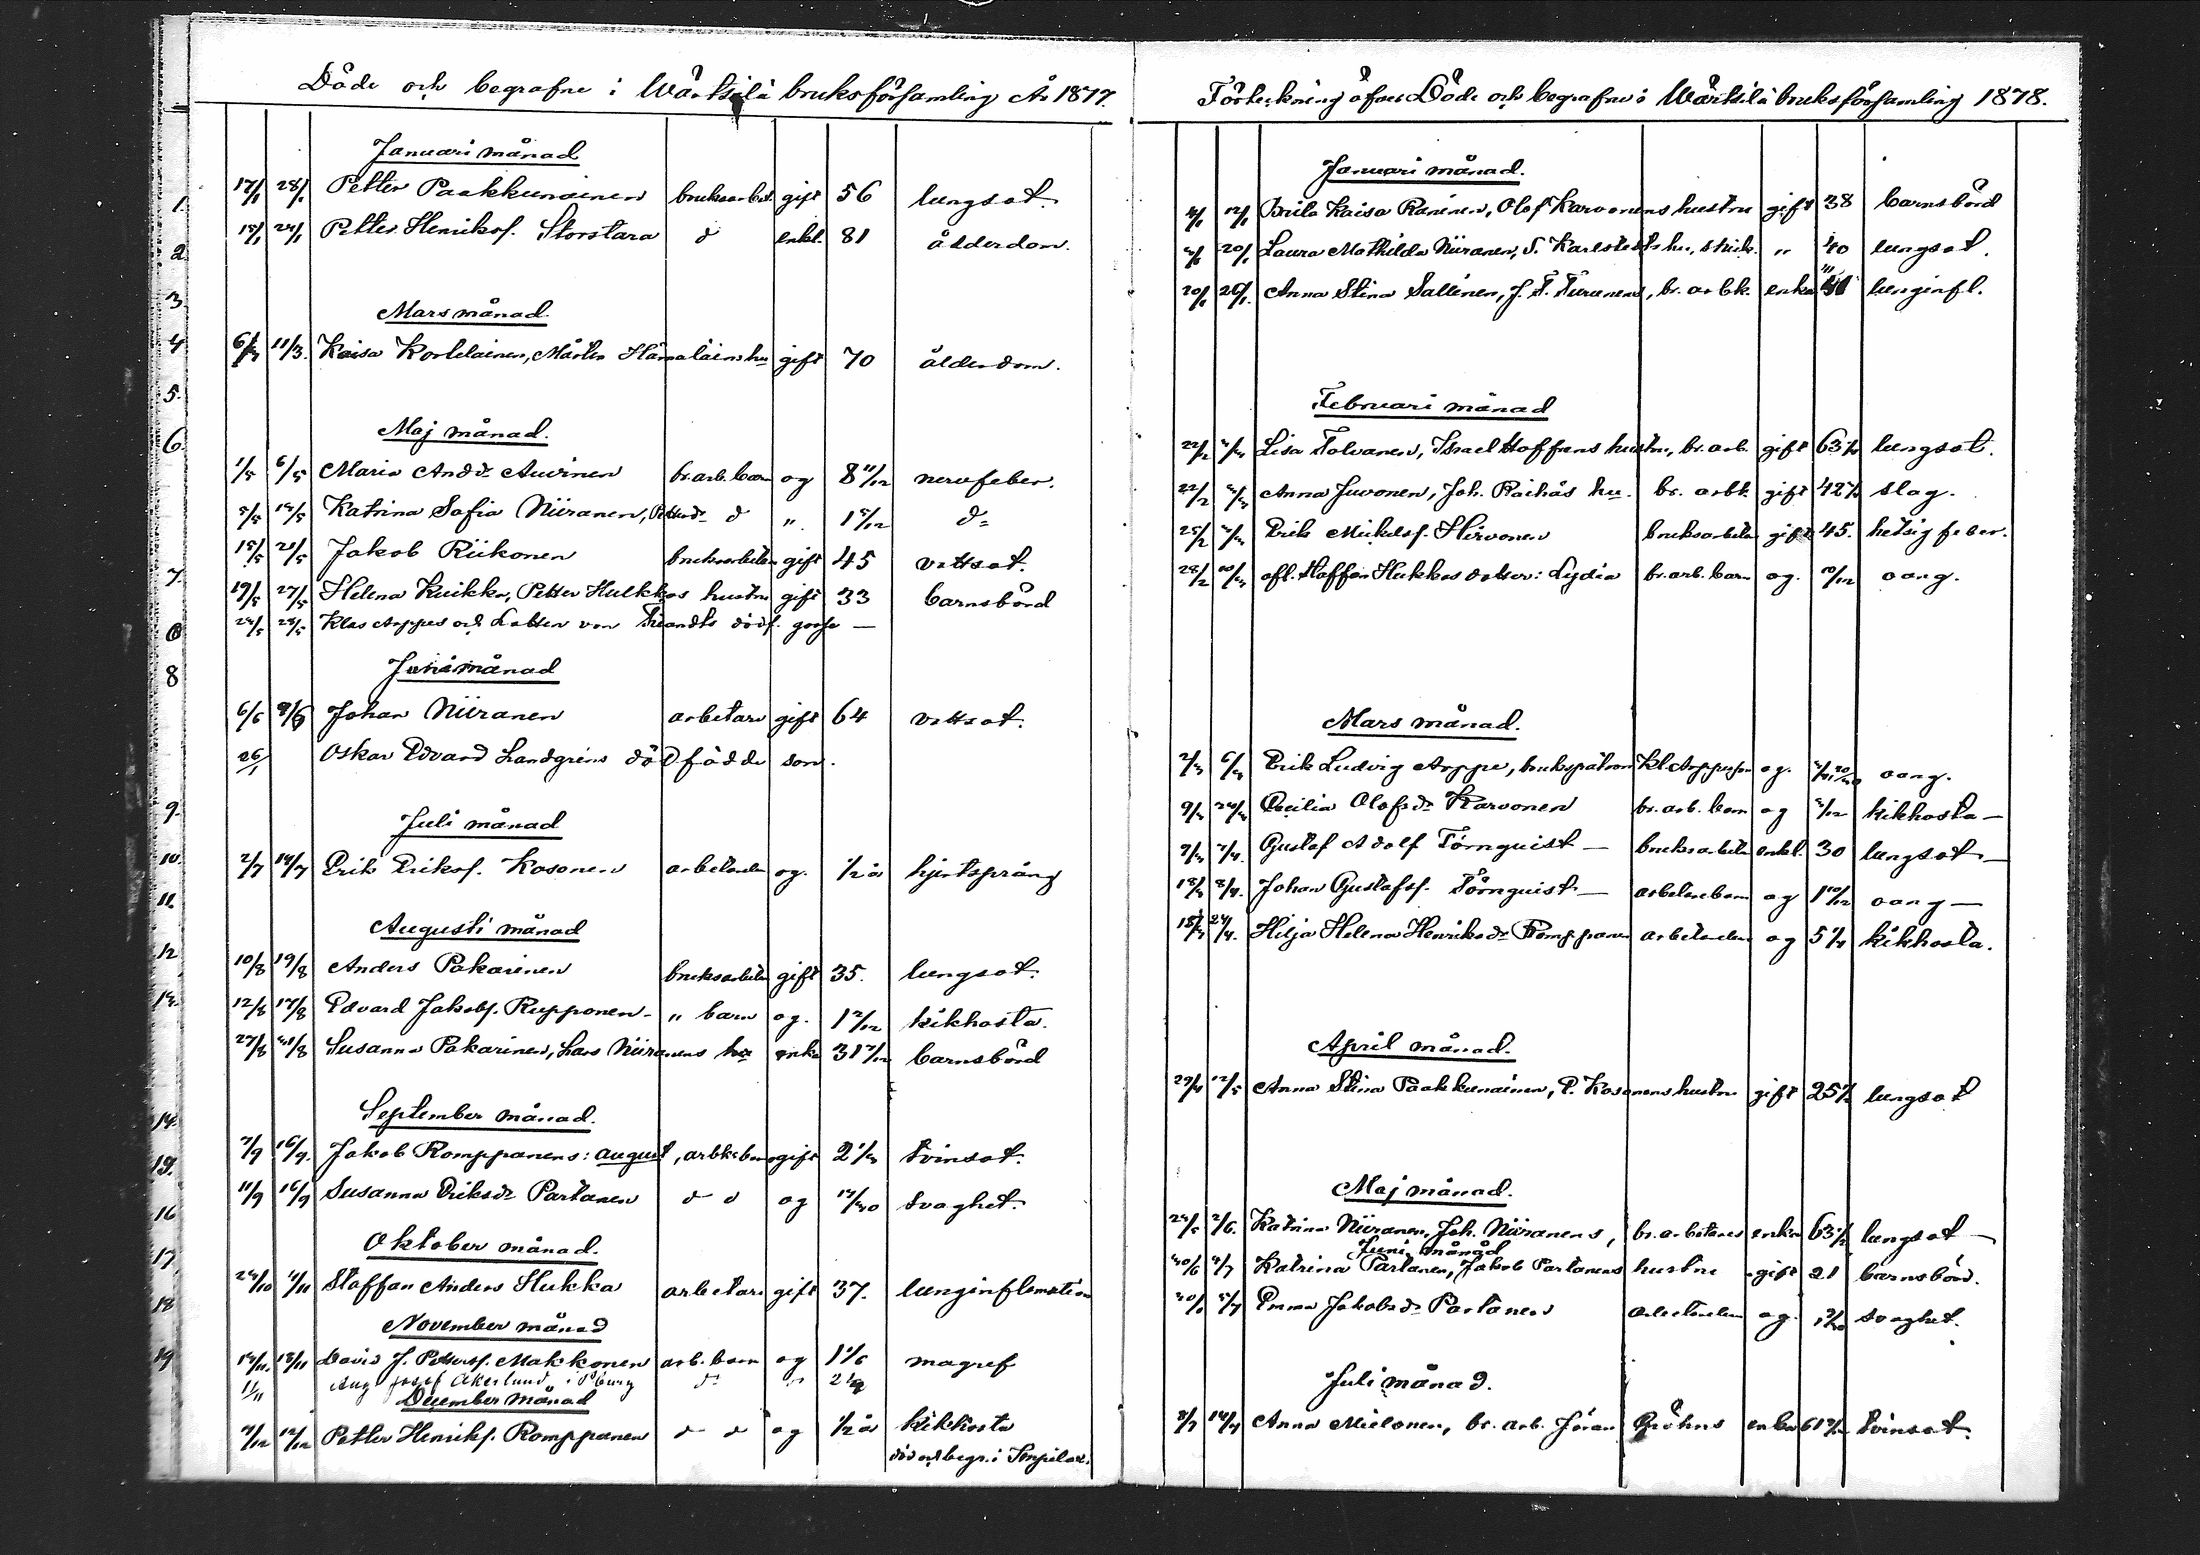 Döde och begrafne i Wärtsilä bruksförsamling År 1877.
Januari månad
17/1 28/1 Petter Paakkunainen bruksarbet. gift 56 lungsot
18/1 24/1 Petter Henriksf. Storstara d enkl. 81 ålderdom.
Mars månad.
6/3 11/3. Kaisa Kortelainen, Mårten Hämäläinens hu gift 70 ålderdom.
Maj månad.
1/5 6/5 Maria Andr Auvinen br. arb. barn og 8 11/12 nervfeber.
5/5 14/5 Katrina Sofia Niiranen, d " 1 5/12 d=
15/5 21/5 Jakob Riikonen bruksarbetare gift 45 vattsot.
19/5 27/5 Helena Kuikka, Petter Hukkas hustru gift 33 barnsbörd
24/5 28/5 Klas Arppes och von dödf. gosse —
Juni månad
6/6 Johan Niiranen arbetare gift 64 vattsot.
26/ Oskar Edvard Landgrens dödfödde son.
Juli månad
2/7 14/7 Erik Eriksf. Kosonen og. 1/2 år hjertsprång
Augusti månad
10/8 19/8 Anders Pakarinen bruksarbetare gift 35. lungsot.
12/8 17/8 Edvard Jakobsf. Rupponen - " barn og. kikhosta.
27/8 31/8 Susanna Pakarinen, Lars Niiranens hu enka 31 barnsbörd
September månad.
7/9 16/9. Jakob Romppanens: August, gift 2 1/3 tvinsot.
11/9 16/9 Susanna Eriksdr Partanen d d og 17/30 svaghet.
Oktober månad.
24/10 4/11 Staffan Anders Hukka arbetare gift 37. lunginflamation
November månad
14/11 18/11 David J. Pettersf. Makkonen arb. barn og 1 1/6 magref
1/11 Aug Josef Åkerlund i d
December månad
12/12 Petter Henriksf. Romppanen d d og 1/2 år kikhosta
död och begr. i Impilax.
1.
2
3.
4
5.
6.
7.
8
9.
10.
11.
12
13.
14.
15.
16
17.
18
19
Förteckning öfver Döde och begrafne i Wärtsilä bruksförsamling 1878.
Januari månad.
4/1 12/1 Brita Kaisa Raninen, Olof Karvonens hustru gift 38 barnsbörd
20/1 Laura Mathilda Niiranen, S. Karlstedts hu, " 40 lungsot.
20/1 26/1. Anna Stina Sallinen, J. F. Turunens, br. arbk. enka lunginfl.
Februari månad
22/2 Lisa Tolvanen, Israel Hoffrens hustru, br. arb. gift 63 lungsot.
22/2 Anna Juvonen, Joh. Räihäs hu. br. arbk gift 42 slag.
25/2 Erik Mickelsf. Hirvonen bruksarbetare gift 45. hetsig feber.
28/2 10/3 afl. Staffan Hukkas dotter: Lydia br. arb. barn og. 10/12 oang.
Mars månad.
2/3 6/3 Erik Ludvig Arppe, brukspatron Kl. Arppes son og. oang.
9/3 24/3 Cecilia Olofsdr Karvonen br. arb. barn og kikhosta —
7/4. Gustaf Adolf Törnquist — bruksarbetare enkl. 30 lungsot —
18/3 Johan Gustafsf. Törnquist — arbetarebarn og 1 10/12 oang —
Hilja Helena Henriksdr Romppanen og kikhosta.
April månad.
29/4 12/5 Anna Stina Paakkunainen, P. Kosonens hustru gift 25 lungsot
Maj månad.
24/5 2/6. Katrina Niiranen, Joh. Niiranens, br. arbetares enka 63 lungsot —
Juni månad
30/6 Katrina Partanen, Jakob Partanens hustru gift 21 barnsbörd.
30/6 Emma Jakobsdr Partanen og. svaghet.
Juli månad.
14/7 Anna Mielonen, br. arb. Jöran Gröhns enka 61 tvinsot.